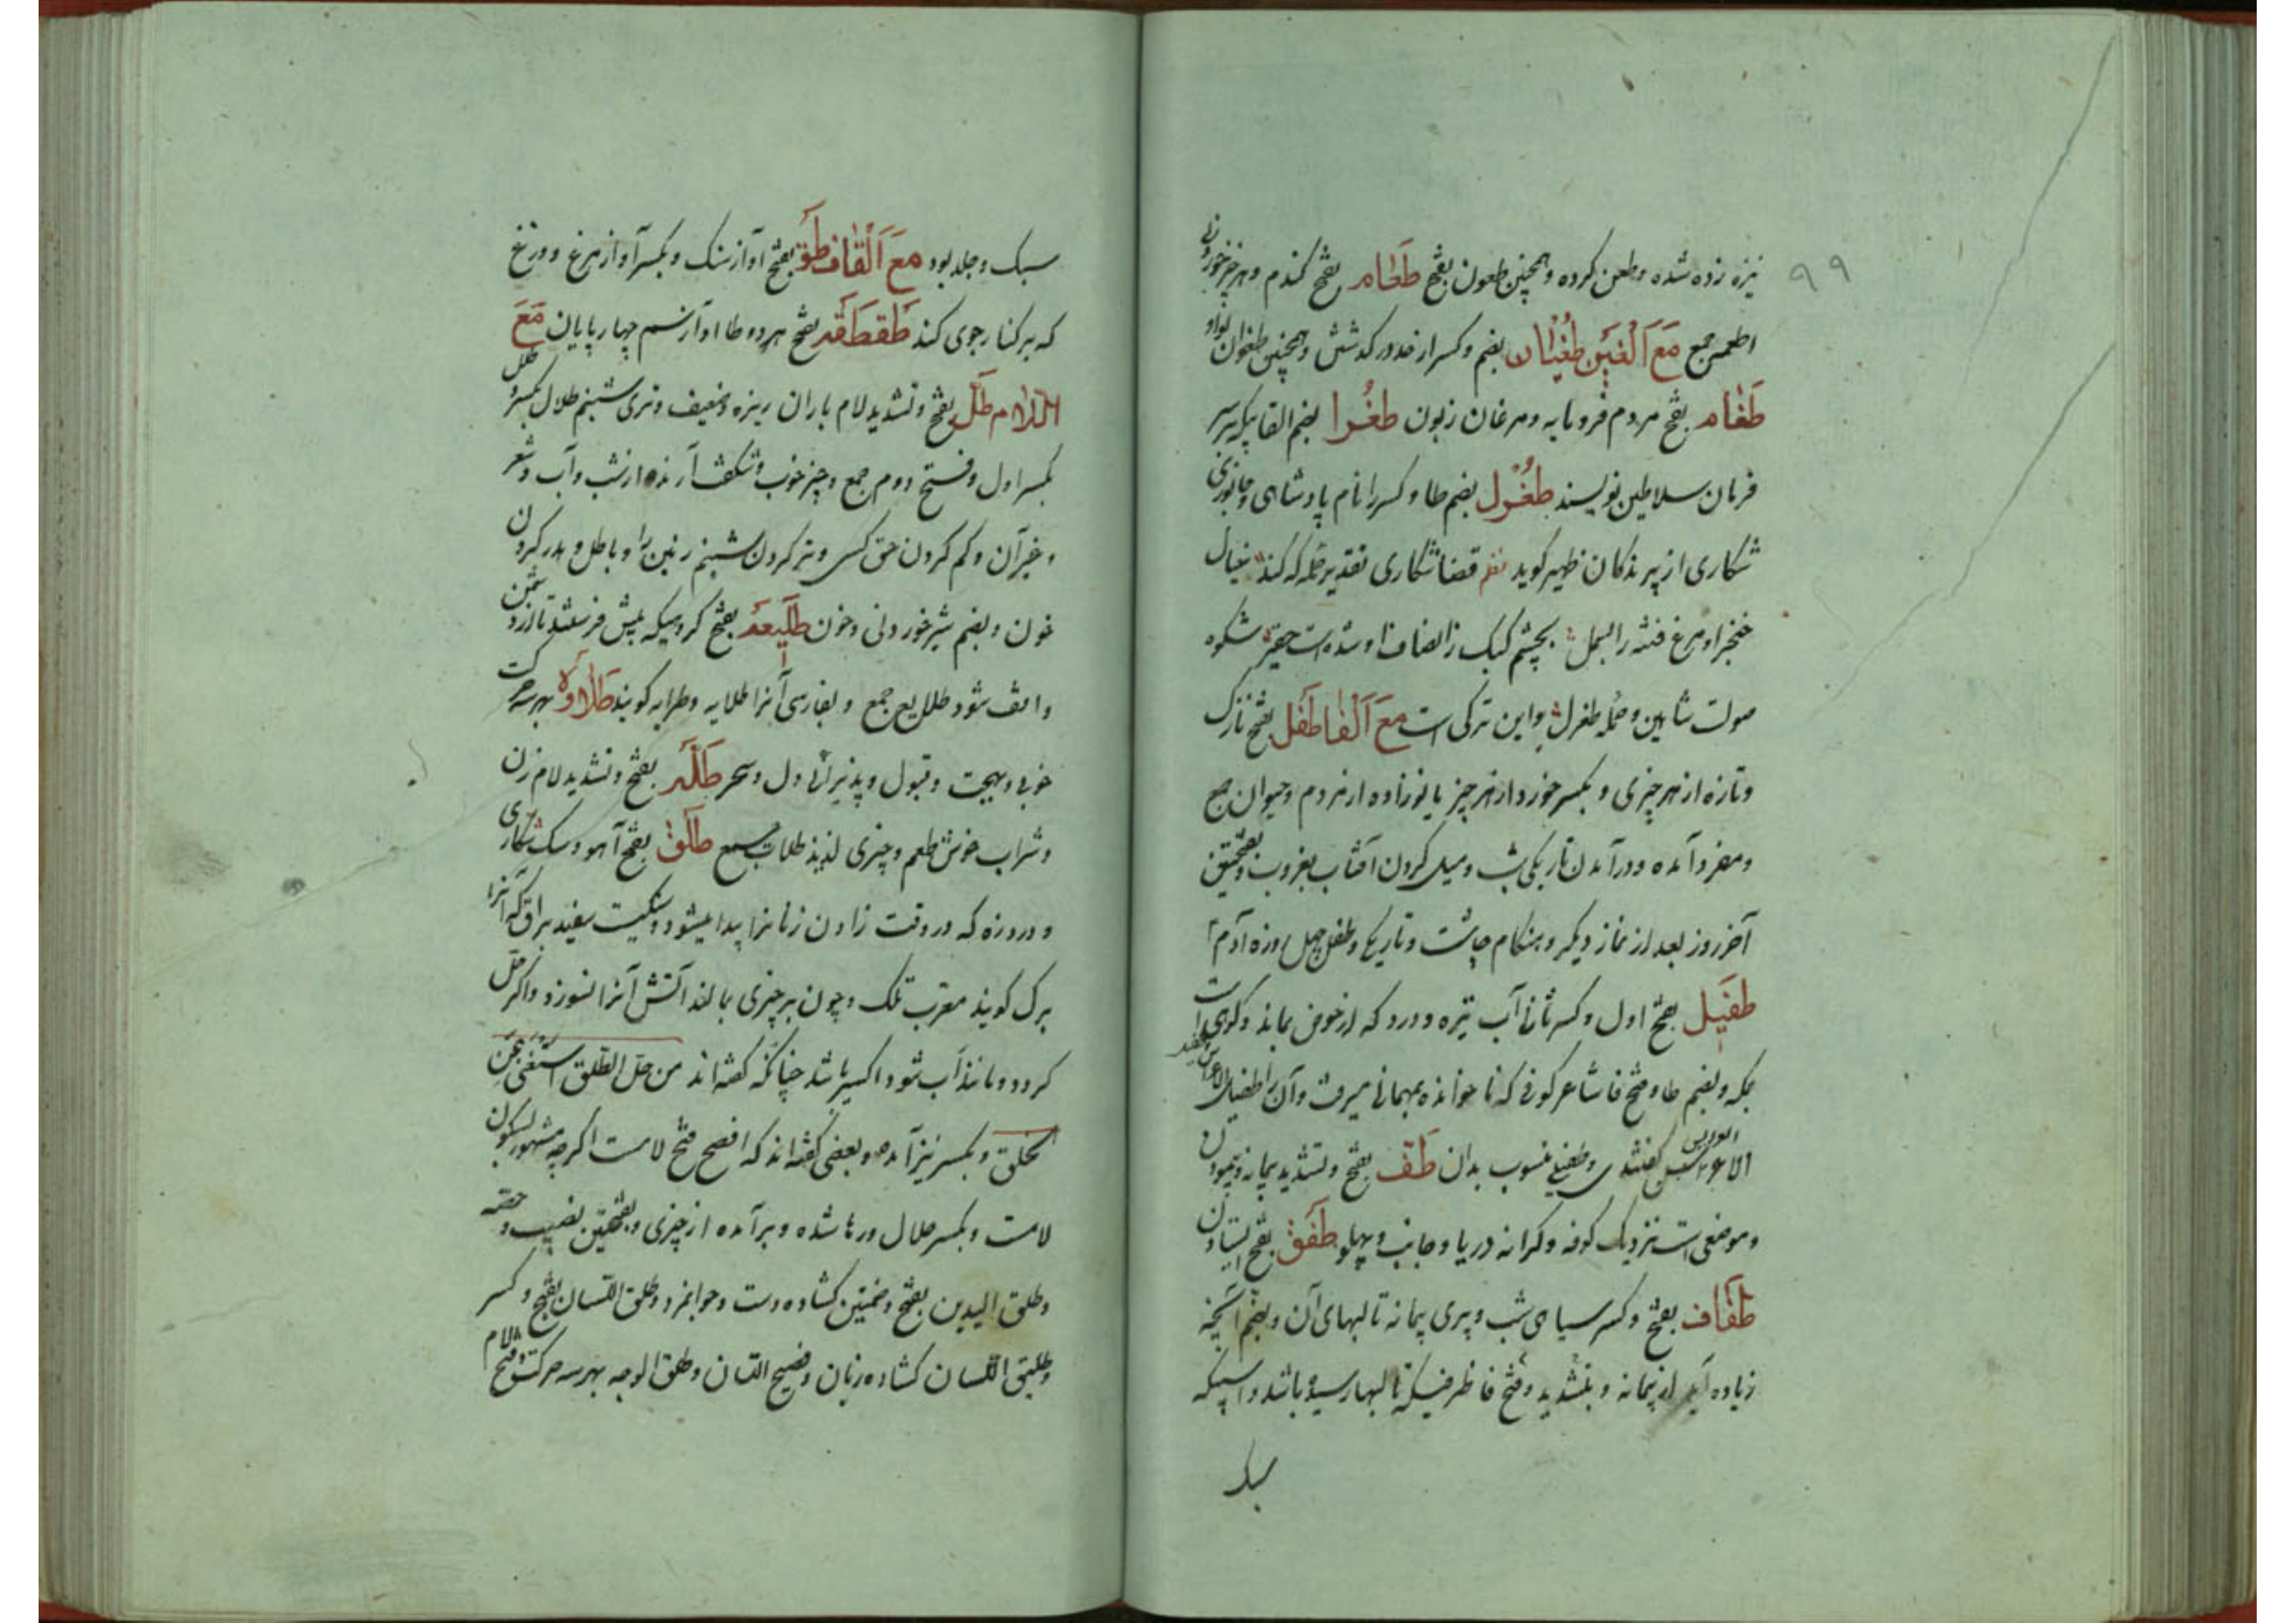 ۹۹
نیزه زده شده و طعن کرده و همچنین طعون بفتح طَعَام بفتح گندم و هر چیز خوردنی
اطعمه جمع مَعَ اَلْغَیْن طُغْیَان بضم و کسر از حد در گذشتن و همچنین طغوان بواو
طَغَام بفتح مردم فرومایه و مرغان زبون طُغْرا بضم القابیکه بر سر
فرمان سلاطین نویسند طُغْرل بضم طا و کسر را نام پادشاهی و جانوری
شکاری از پرندگان ظهیر کوید قضا شکاری تقدیر حمله که کند خیال
خنجر او مرغ فتنه را بسمل بچشم کبک ز انصاف او شده است حقیر شکوه
صولت شاهین و حمله طغرل و این ترکی است مَعَ اَلْفَا طَفْل بفتح نازک
و تازه از هر چیزی و بکسر خورد از هر چیز یا نوزاده از مردم و حیوان جمع
و مفرد آمده و در آمدن تاریکی شب و میل کردن آفتاب بغروب و بفتحتین
آخر روز بعد از نماز دیکر و هنکام چاشت و تاریکی و طفل چهل روزه آدم
طَفِیْل بفتح اول و کسر ثانی آب تیره و درد که از حوض بماند و کوهی است
بمکه و بضم طا و فتح فا شاعر کوفی که ناخوانده بمهمانی میرفت و آن را طفیل
الاعراس کفتندی و طفیلی منسوب بدان طَفّ بفتح و تشدید پیمانه پیمودن
و موضعی است نزدیک کوفه و کرانه دریا و جانب و پهلو طَفَق بفتح ایستادن
طَفَاف بفتح و کسر سیاهی شب و پری پیمانه تا لبهای آن و بضم آنچه
زیاده آید از پیمانه و بتشدید و فتح فا ظرفیکه تا لبها رسیده باشد و اسپیکه
سبک
سبک و جلد بود مَعَ اَلْقَاف طَق بفتح آواز سنک و بکسر آواز مرغ و وزغ
که بر کنار جوی کند طَقطَقَه بفتح هر دو طا آواز سم چهارپایان مَعَ
اللّام طَلّ بفتح و تشدید لام باران ریزه و ضعیف و تری شبنم طلال بکسر و طلل
بکسر اول و فتح دوم جمع و چیز خوب و شکفت آرنده از شب و آب و شعر
و غیر آن و کم کردن حق کسی و تر کردن شبنم زمین را و باطل و هدر کردن
خون و بضم شیر خوردنی و خون طَلِیعَه بفتح کروهیکه پیش فرستند تا از دشمن
واقف شود طلایع جمع و بفارسی آنرا طلایه و طرایه کویند طَلَاوَة بهر سه حرکت
خوبی و بهجت و قبول و پذیرائی دل و سحر طَلَّه بفتح و تشدید لام زن
و شراب خوش طعم و چیزی لذیذ طلات جمع طَلَق بفتح آهو و سک شکاری
و درد زه که در وقت زادن زنانرا پیدا میشود و سنکیست سفید براق که آنرا
برک کویند معرب تلک و چون بر چیزی بمالند آتش آنرا نسوزد و اکر حل
کردد و مانند آب شود اکسیر باشد چنانکه کفته اند من حل الطّلق استغنی عن
الخلق و بکسر نیز آمده و بعضی کفته اند که افصح فتح لامست اکرچه مشهور بسکون
لامست و بکسر حلال و رها شده و برآمده از چیزی و بفتحتین نصیب و حصه
و طلق الیدین بفتح و ضمتین کشاده دست و جوانمرد و طلق اللسان بفتح و کسر
و طلیق اللسان کشاده زبان و فصیح اللسان و طلق الوجه بهر سه حرکت و فتح لام